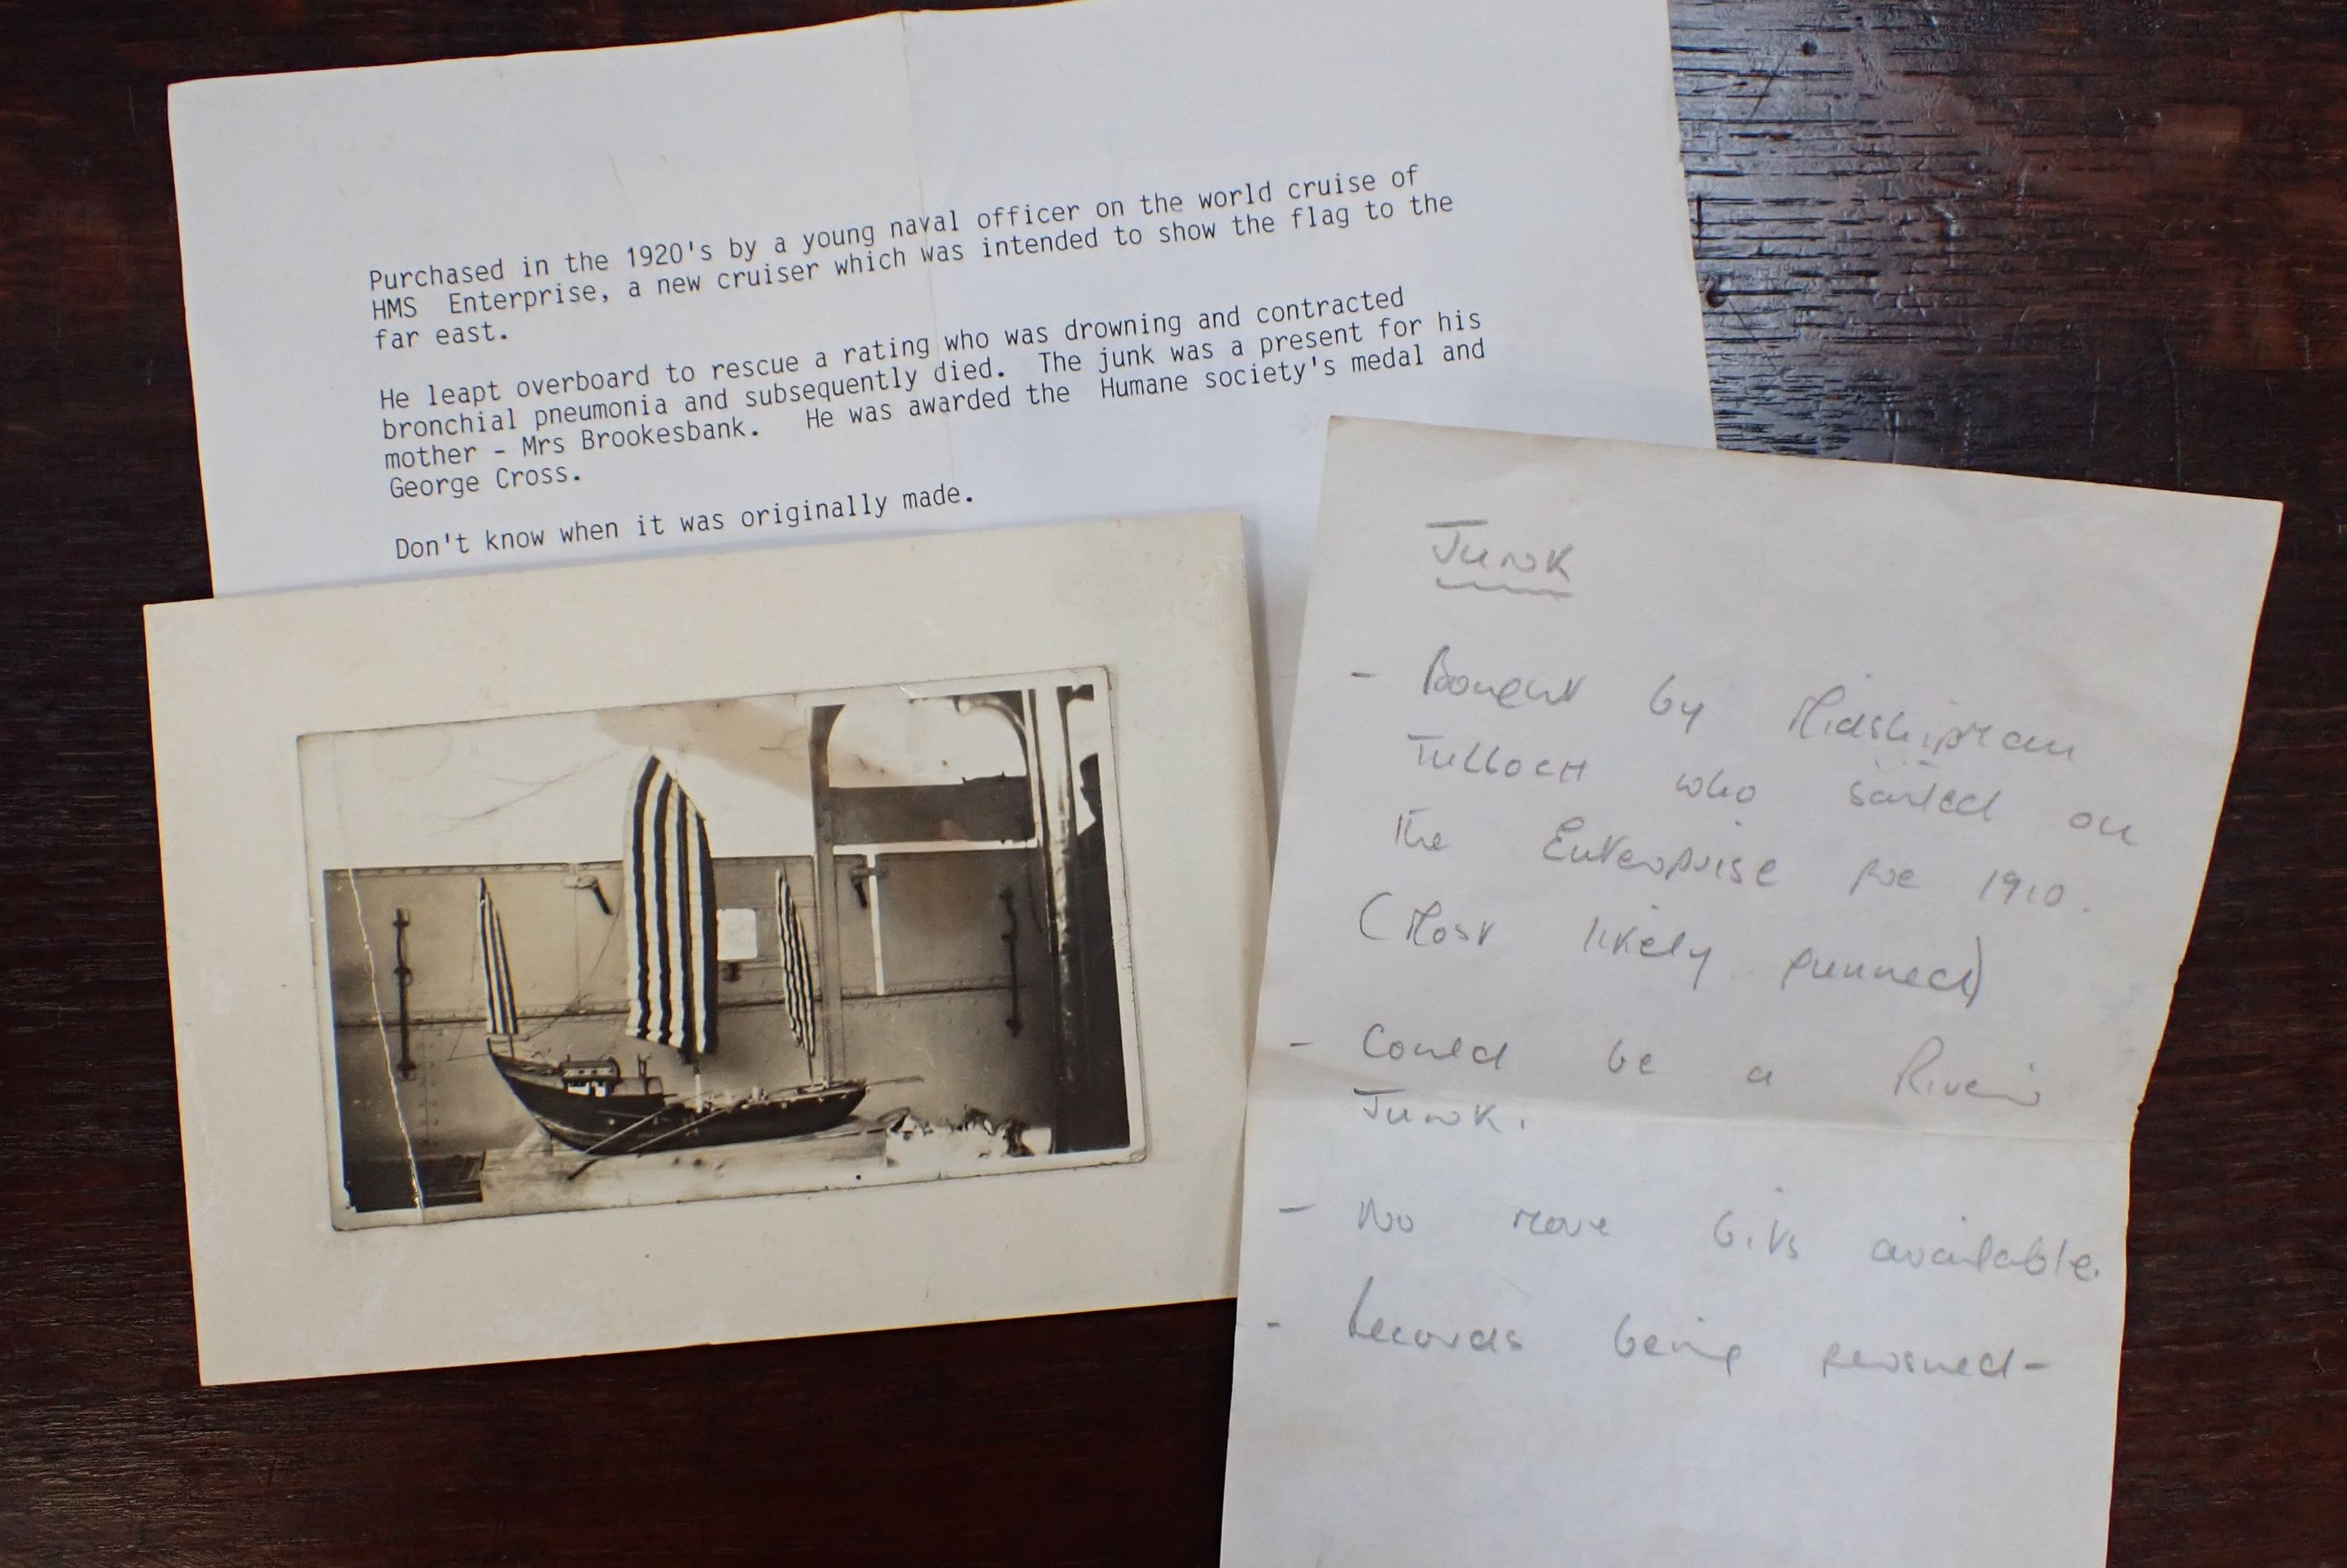 Purchased in the 1920's by a young naval officer on the world cruise of
HMS Enterprise, a new cruiser which was intended to show the flag to the
far east.
He leapt overboard to rescue a rating who was drowning and contracted
bronchial pneumonia and subsequently died. The junk was a present for his
mother - Mrs Brookesbank. He was awarded the Humane society's medal and
George Cross.
Don't know when it was originally made.
Junk
- Bought by Midshipman
Tulloch who sailed on
the Enterprise pre 1910.
(Most likely
- Could be a River
Junk.
- No more bits available.
- Records being